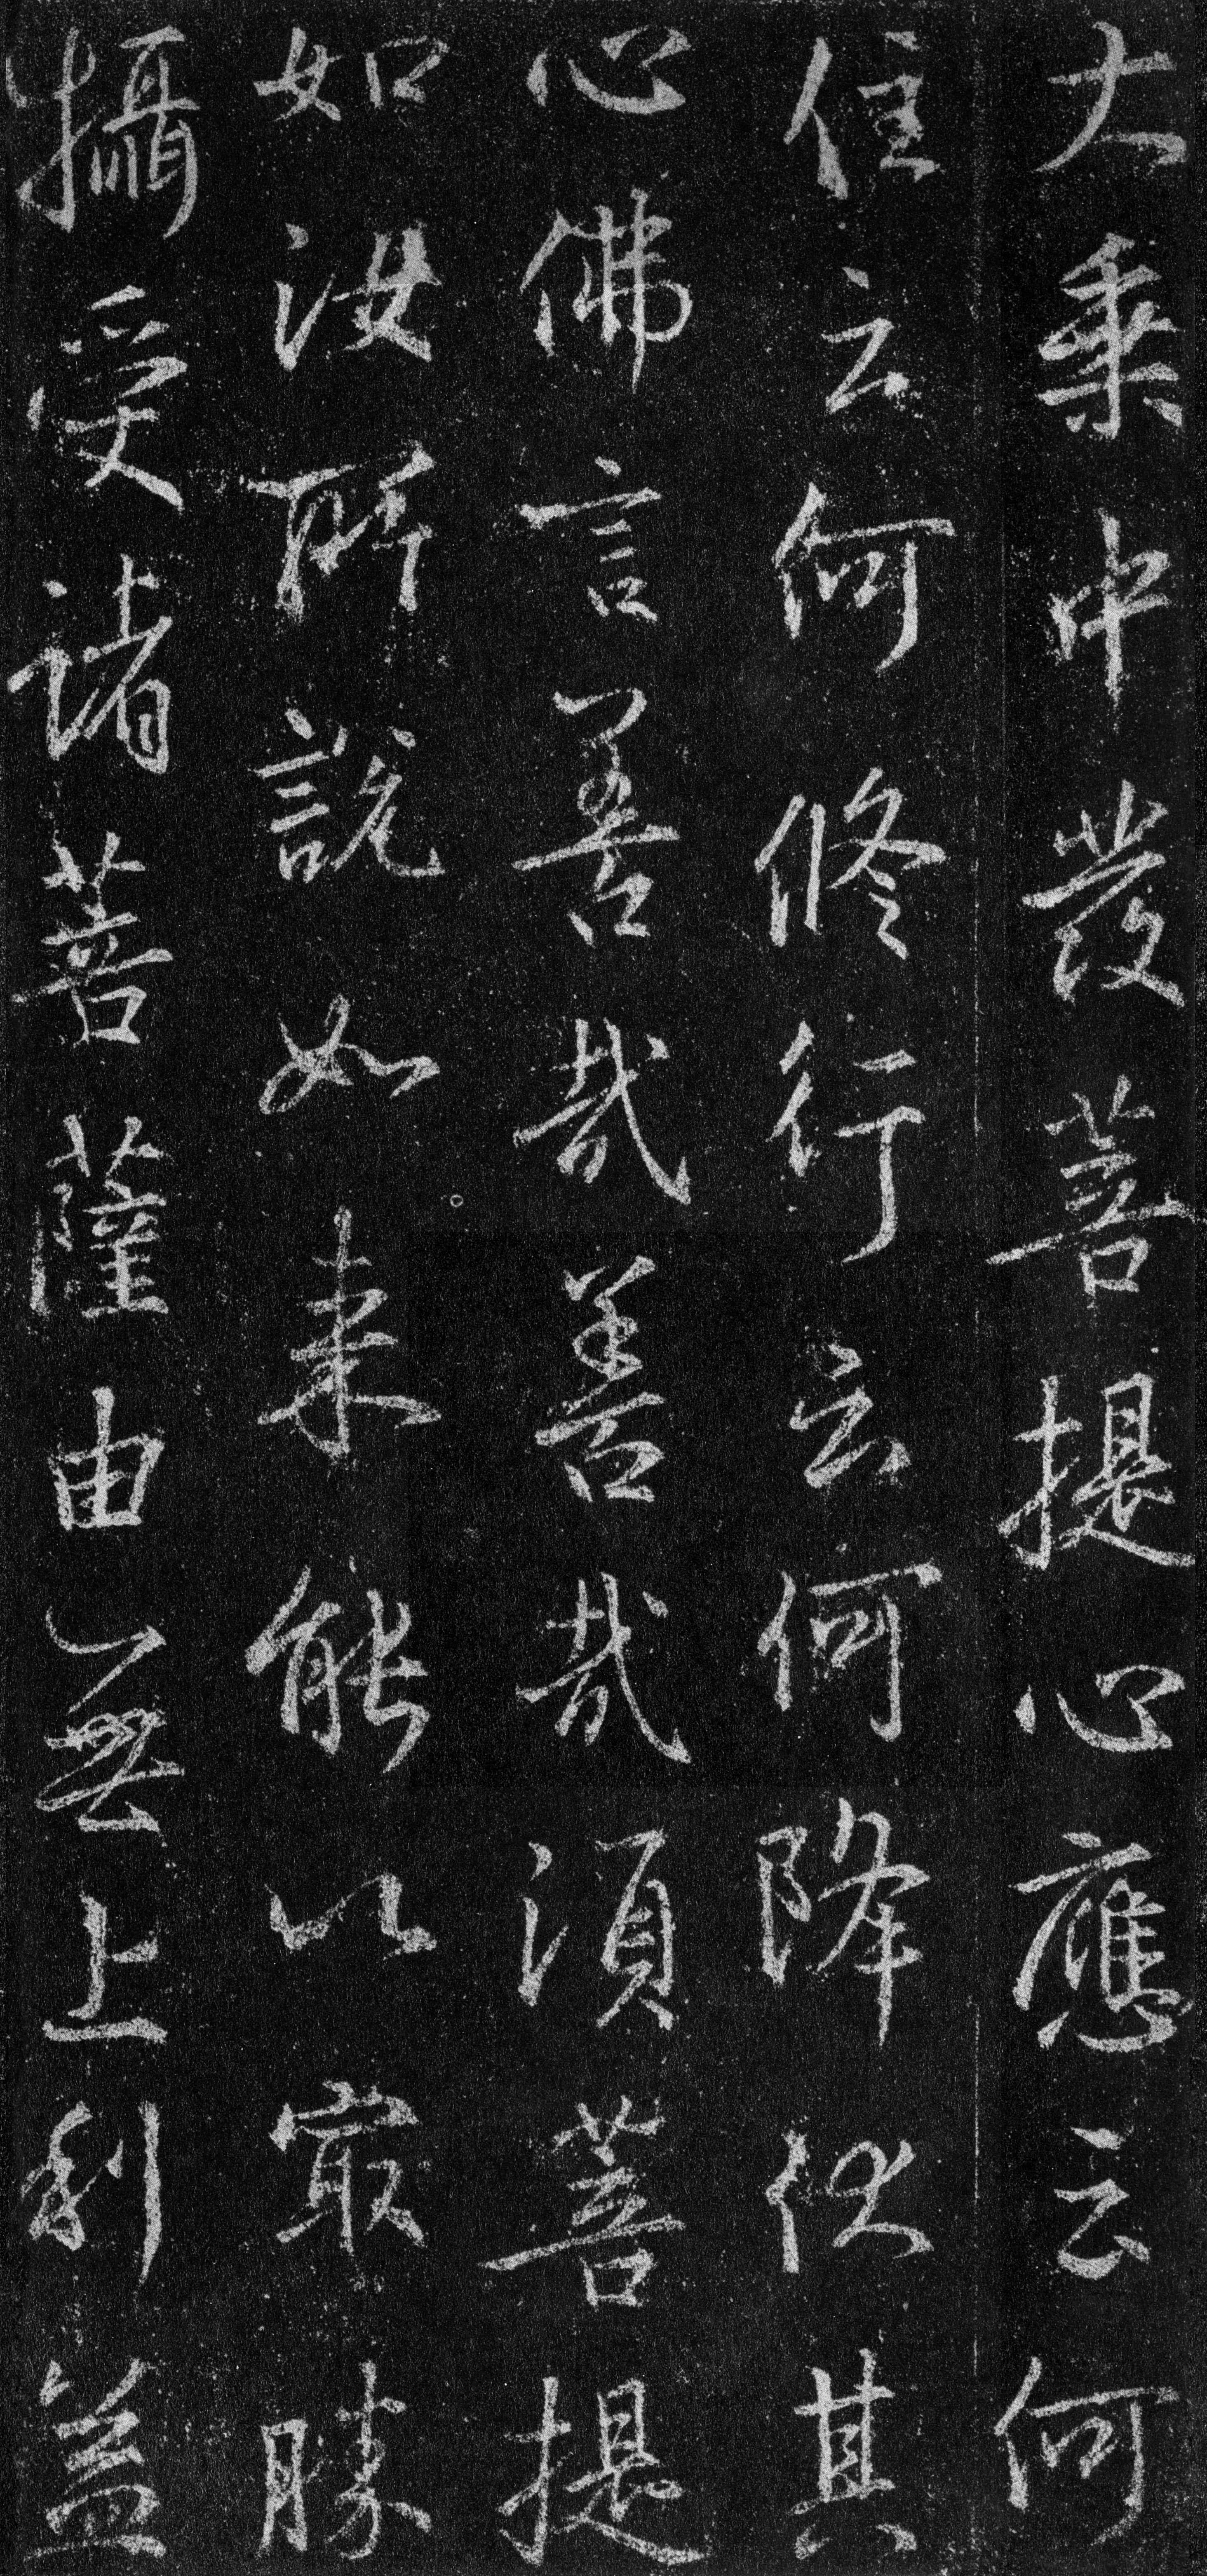 大乘中發菩提心應云何
住云何修行云何降伏其
心佛言善哉善哉須菩提
如汝所說如來能以最勝
攝受諸菩薩由無上利益